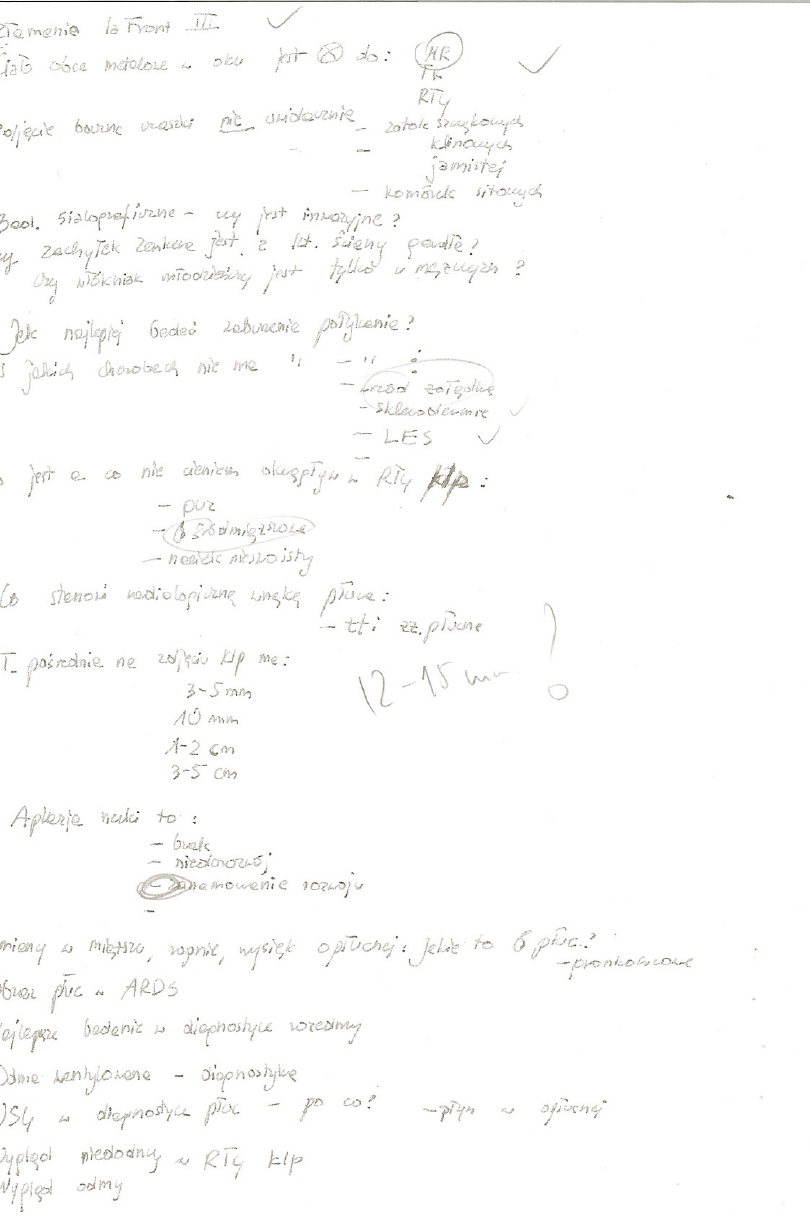 złamanie la Front III
ciało obce metalowe w oku jest ⊗ do: MR
TK
RTg
zdjęcie boczne czaszki nie uwidacznia – zatok szczękowych
– klinowych
jamistej
– komórek sitowych
Bad. sialograficzne – czy jest inwazyjne?
czy zachyłek Zenkera jest z tyl. ściany gardła?
czy włókniak młodzieńczy jest tylko u mężczyzn?
Jak najlepiej badać zaburzenie połykania?
jakich chorobach nie ma " – " :
– wrzód żołądka
– sklerodermia
– LES
–
jest a co nie cieniem okrągłym w RTg klp:
– guz
– śródmiąższowe
– naciek nieswoisty
Co stanowi radiologiczną wnękę płuca:
– tt i zz. płucne
T. pośrednie na zdjęciu klp ma:
3-5 mm
10 mm
1-2 cm
3-5 cm
12-15 mm !
Aplazja nerki to:
– brak
– niedorozwój
– zahamowanie rozwoju
–
zmiany w miąższu, ropnie, wysięk opłucnej: jakie to zap. płuc?
– gronkowcowe
obraz płuc w ARDS
Najlepsze badanie w diagnostyce rozedmy
Odma wentylowana – diagnostyka
USG w diagnostyce płuc – po co? – płyn w opłucnej
Wygląd niedodmy w RTg klp
Wygląd odmy